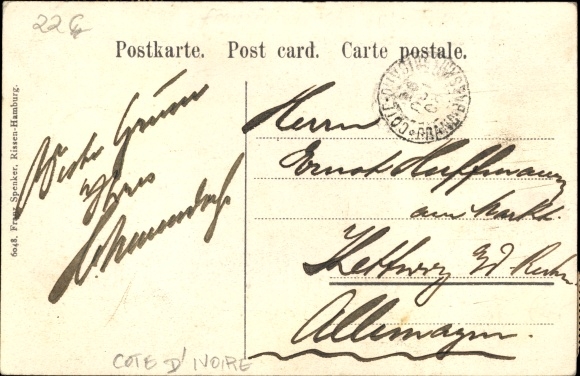 22 G
Postkarte. Post card. Carte postale.
6048. Franz Spenker, Rissen-Hamburg.
Beste Grüsse
Ihres
Herrn
Ernst Huffmann
am Markt
Kettwig a/d Ruhr
Allemagne.
CÔTE-D'IVOIRE
GRAND-BASSAM
COTE D'IVOIRE